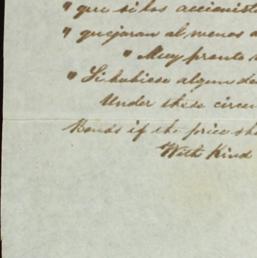 " que si los accionist
" quejaran al menos a
" Muy pronto
" Si hubiese algun de
Under these circu
Bonds if the price sh
With Kind